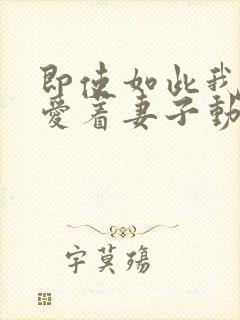 即使如此我
愛着妻子動
字莫殤